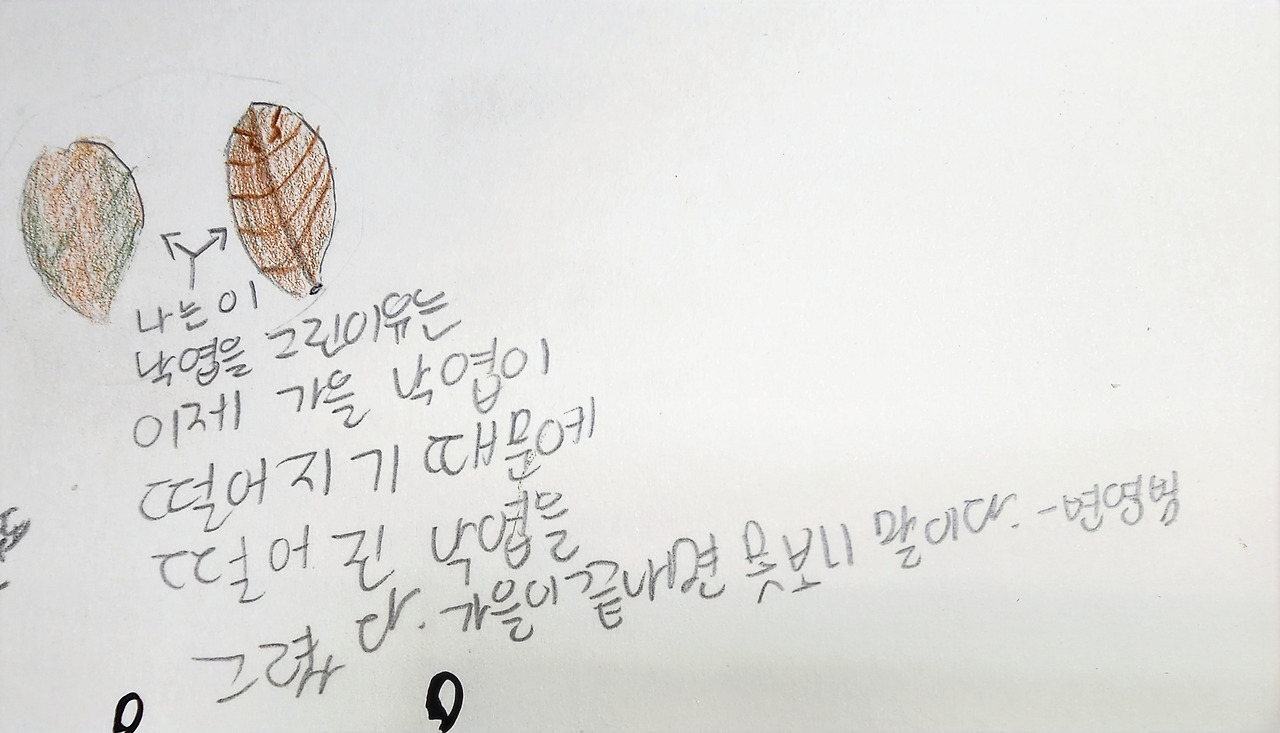 나는 이
낙엽을 그린이유는
이제 가을 낙엽이
떨어지기 때문에
떨어진 낙엽을
그렸다. 가을이 끝내면 못보니 말이다. -변영범